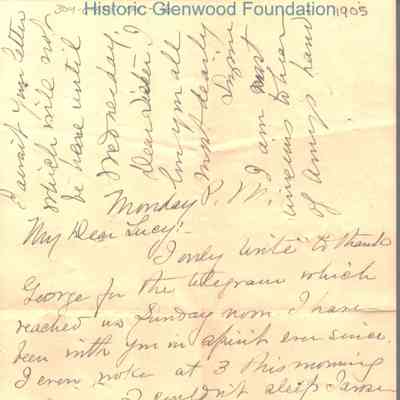 Historic Glenwood Foundation
1905
I await your letter
which will not
be here until
Wednesday.
Dear Sister I
love you all
most dearly
I am most
anxious to hear
of Amy's hand
Monday P. M.
My Dear Lucy:-
I only write to thank
George for the telegram which
reached us Sunday noon I have
been with you in spirit ever since.
I even woke at 3 this morning
I couldn't sleep I arose